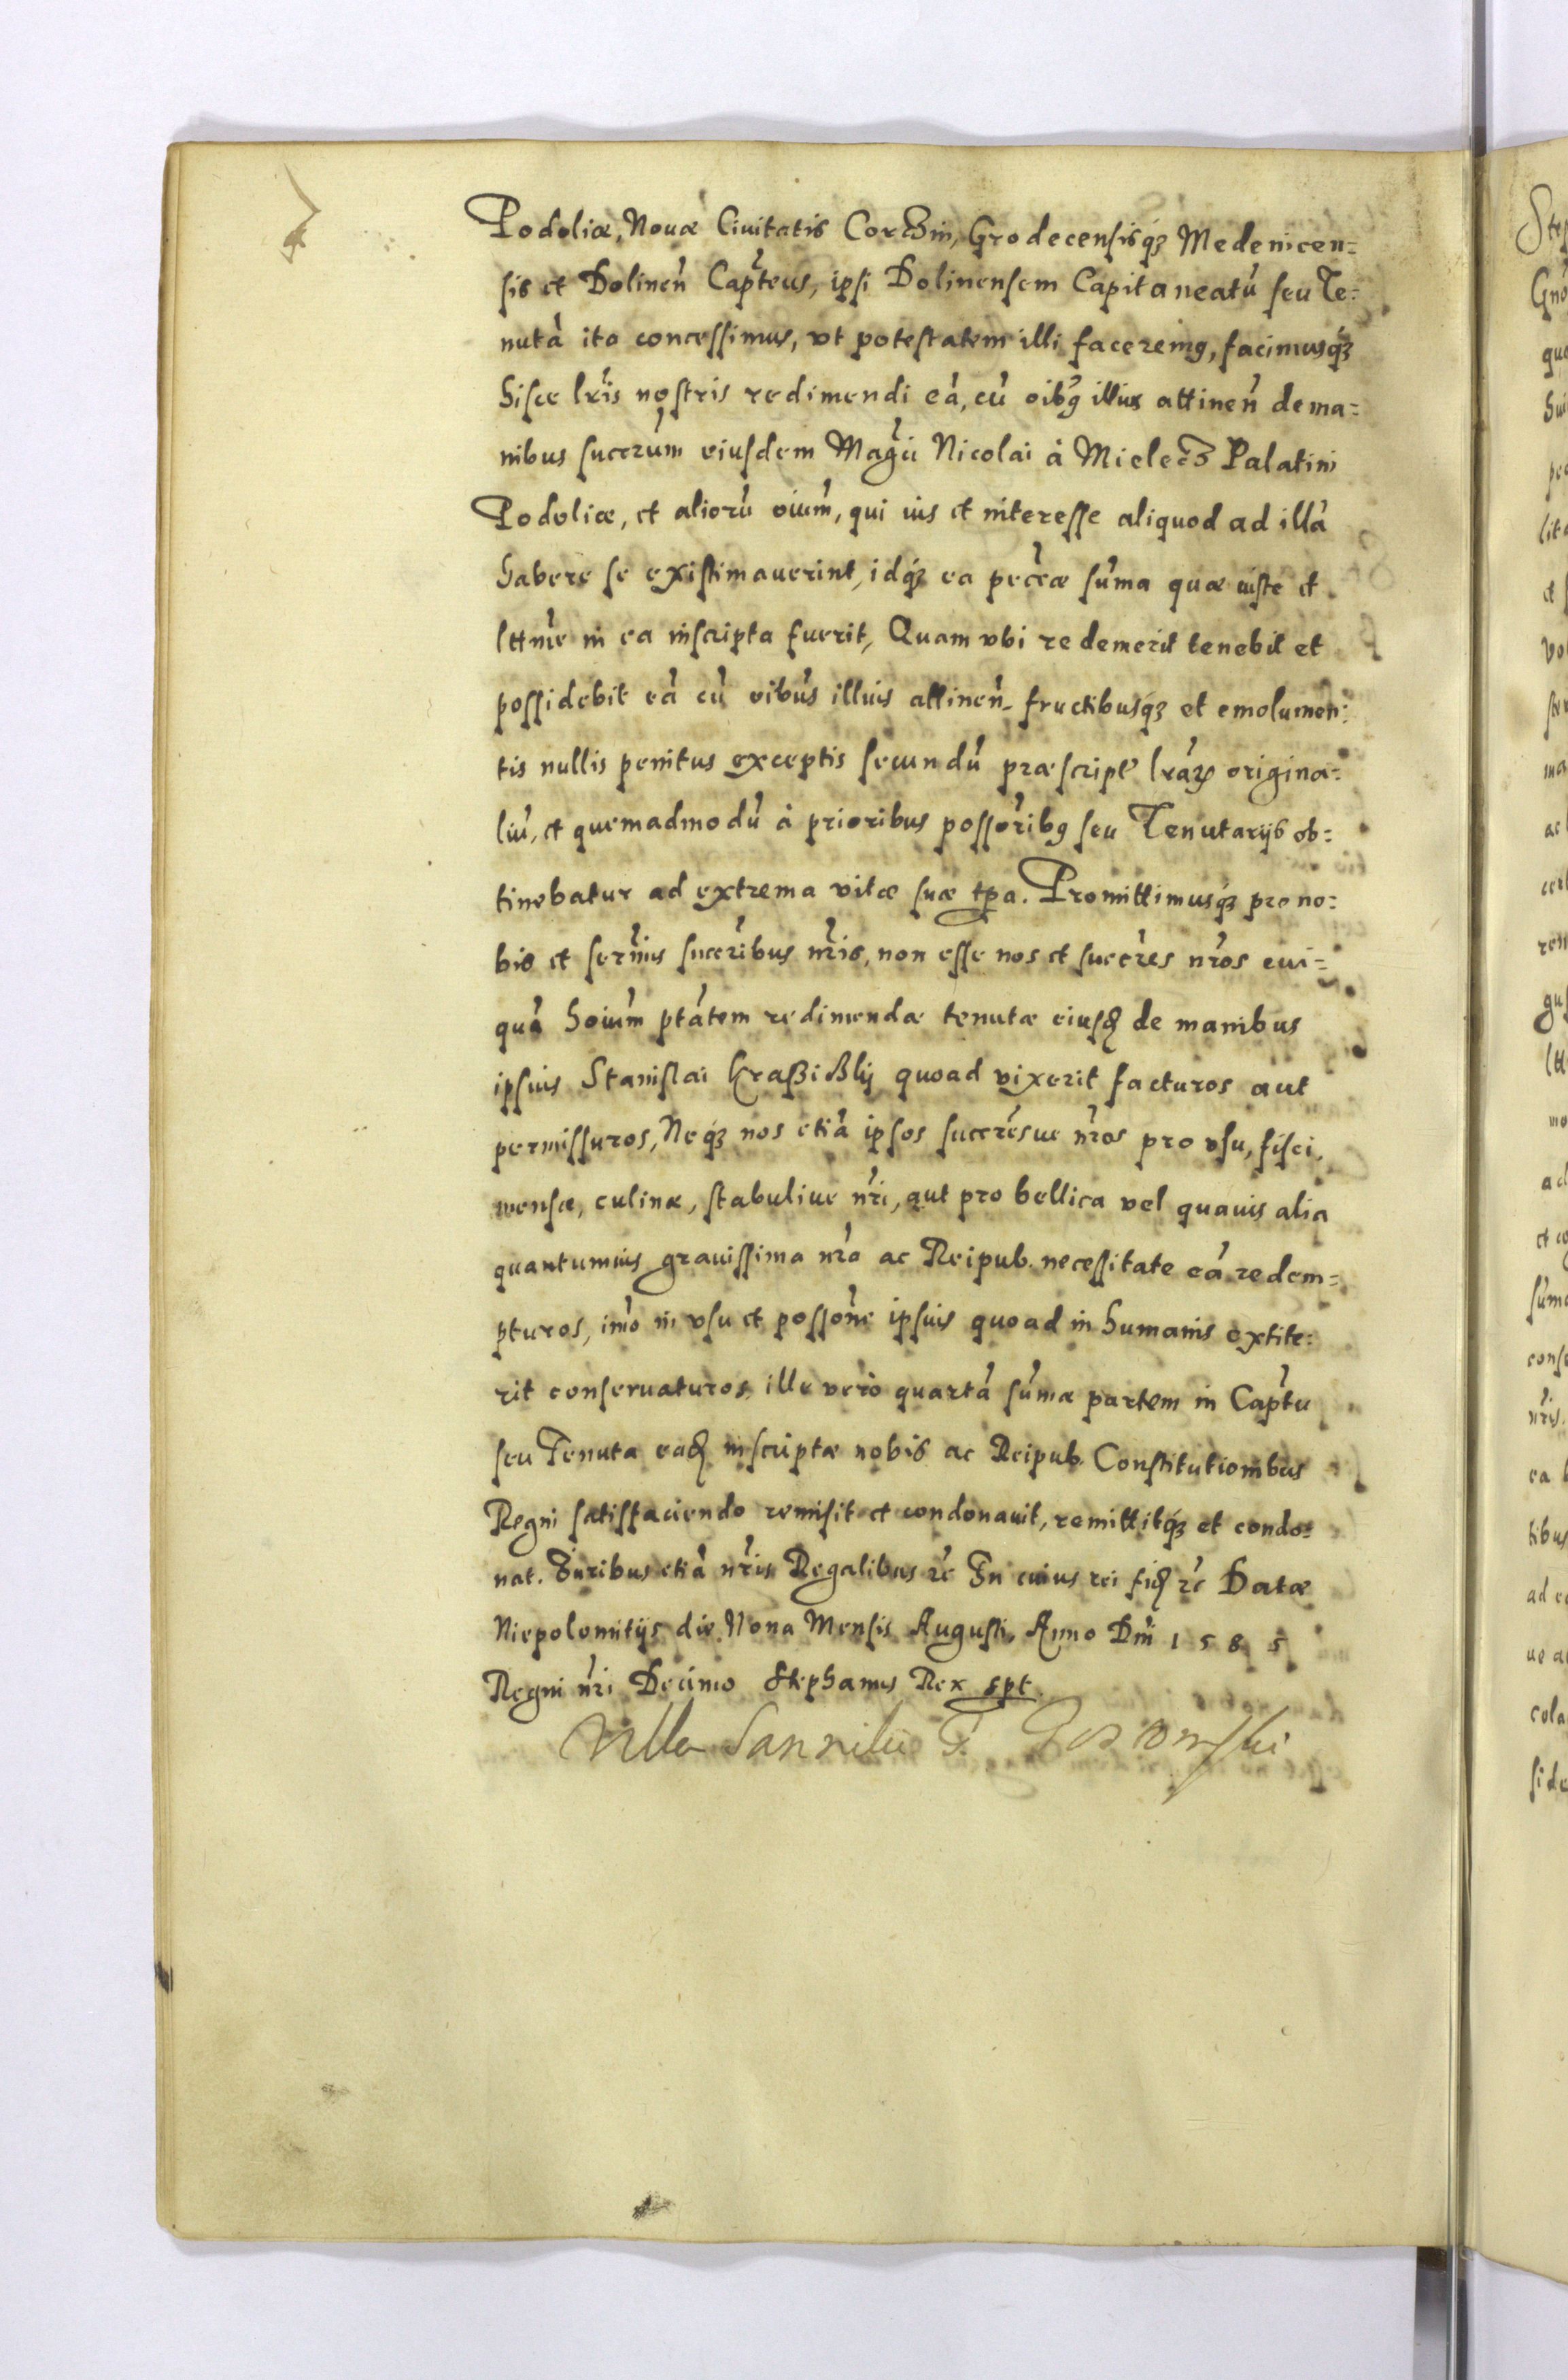 Podoliæ, Nouæ Ciuitatis Corczin, Grodecensisq́ꝫ Medenicen=
sis et Dolinen̄ Cap̄teus, ipsi Dolinensem Capitaneatū seu Te=
nutā ita concessimus, vt potestatem illi faceremꝰ, facimusq́ꝫ
hisce lr̄is nostris redimendi eā, cū oībꝰ illius attinen̄ de ma=
nibus succ̄rum eiusdem Maḡci Nicolai à Mielecz Palatini
Podoliæ, et aliorū oīum, qui ius et interesse aliquod ad illā
habere se existimauerint, idq́ꝫ ea pec̄cæ sūma quæ iuste et
lttīme in ea inscripta fuerit, Quam vbi redemerit tenebit et
possidebit eā cū oībus illius attinen̄ fructibusq́ꝫ et emolumen=
tis nullis penitus exceptis secundū præscript lrāꝝ origina=
liū, et quemadmodū à prioribus possōribꝰ seu Tenutarijs ob=
tinebatur ad extrema vitæ suæ tp̄a. Promittimusq́ꝫ pro no=
bis et ser̄mis succ̄ribus nr̄is, non esse nos et succ̄res nr̄os cui=
quā hoīum ptātem redimendæ tenutæ eiusd de manibus
ipsius Stanislai Kraßißkij quoad vixerit facturos aut
permissuros, Neq́ꝫ nos etiā ipsos succ̄resue nr̄os pro vsu, fisci,
mensæ, culinæ, stabuliue nr̄i, aut pro bellica vel quauis alia
quantumuis grauissima nr̄a ac Reipub. necessitate eā redem=
pturos, imō in vsu et possōne ipsius quoad in humanis extite=
rit conseruaturos, ille verò quartā sūmæ partem in Cap̄tu
seu Tenuta ead inscriptæ nobis ac Reipub. Constitutionibus
Regni satisfaciendo remisit et condonauit, remittitq́ꝫ et condo=
nat. Iuribus etiā nr̄is Regalibus ꝛc̄ In cuius rei fid ꝛc̄ Datæ
Niepolomitijs die Nona Mensis Augusti, Anno Dn̄i 1585
Regni nr̄i Decimo Stephanus Rex spt